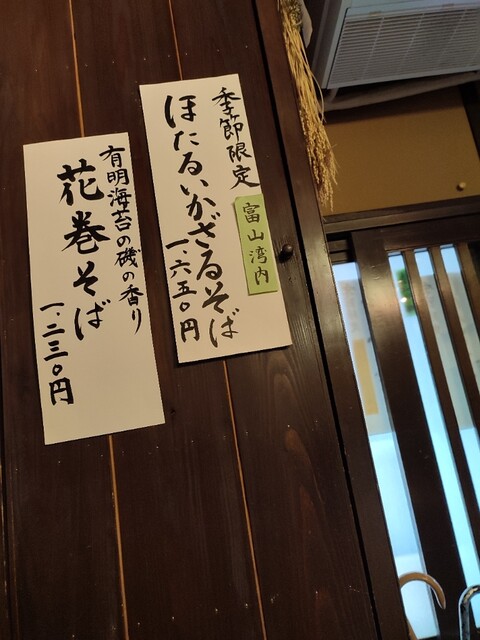 季節限定
富山湾内
ほたるいかざるそば
一、六五〇円
有明海苔の磯の香り
花巻そば
一、二三〇円